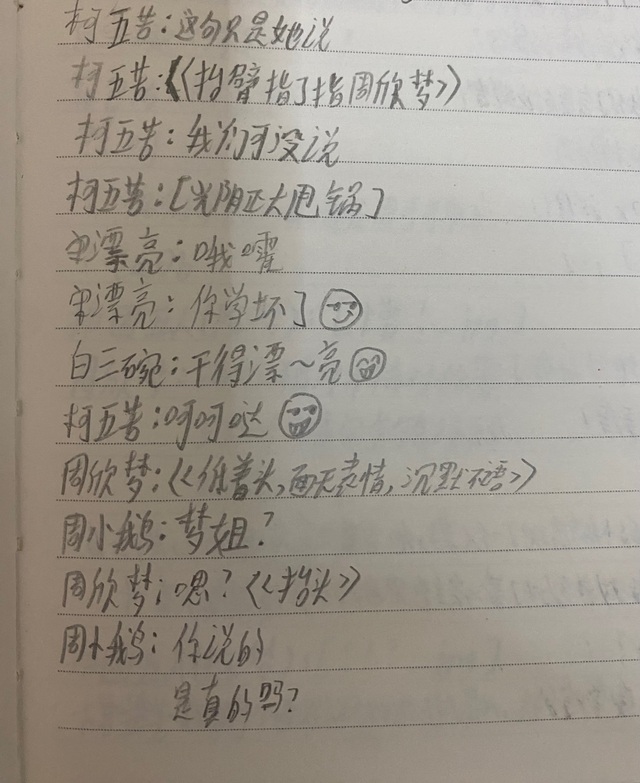 柯五苦：这句只是她说
柯五苦：《〈抬臂指了指周欣梦〉》
柯五苦：我们可没说
柯五苦：[光阴正大甩锅]
宋漂亮：哦嚯
宋漂亮：你学坏了
白三碗：干得漂～亮
柯五苦：呵呵哒
周欣梦：《〈低着头，面无表情，沉默不语〉》
周小鹅：梦姐？
周欣梦：嗯？《〈抬头〉》
周小鹅：你说的
是真的吗？